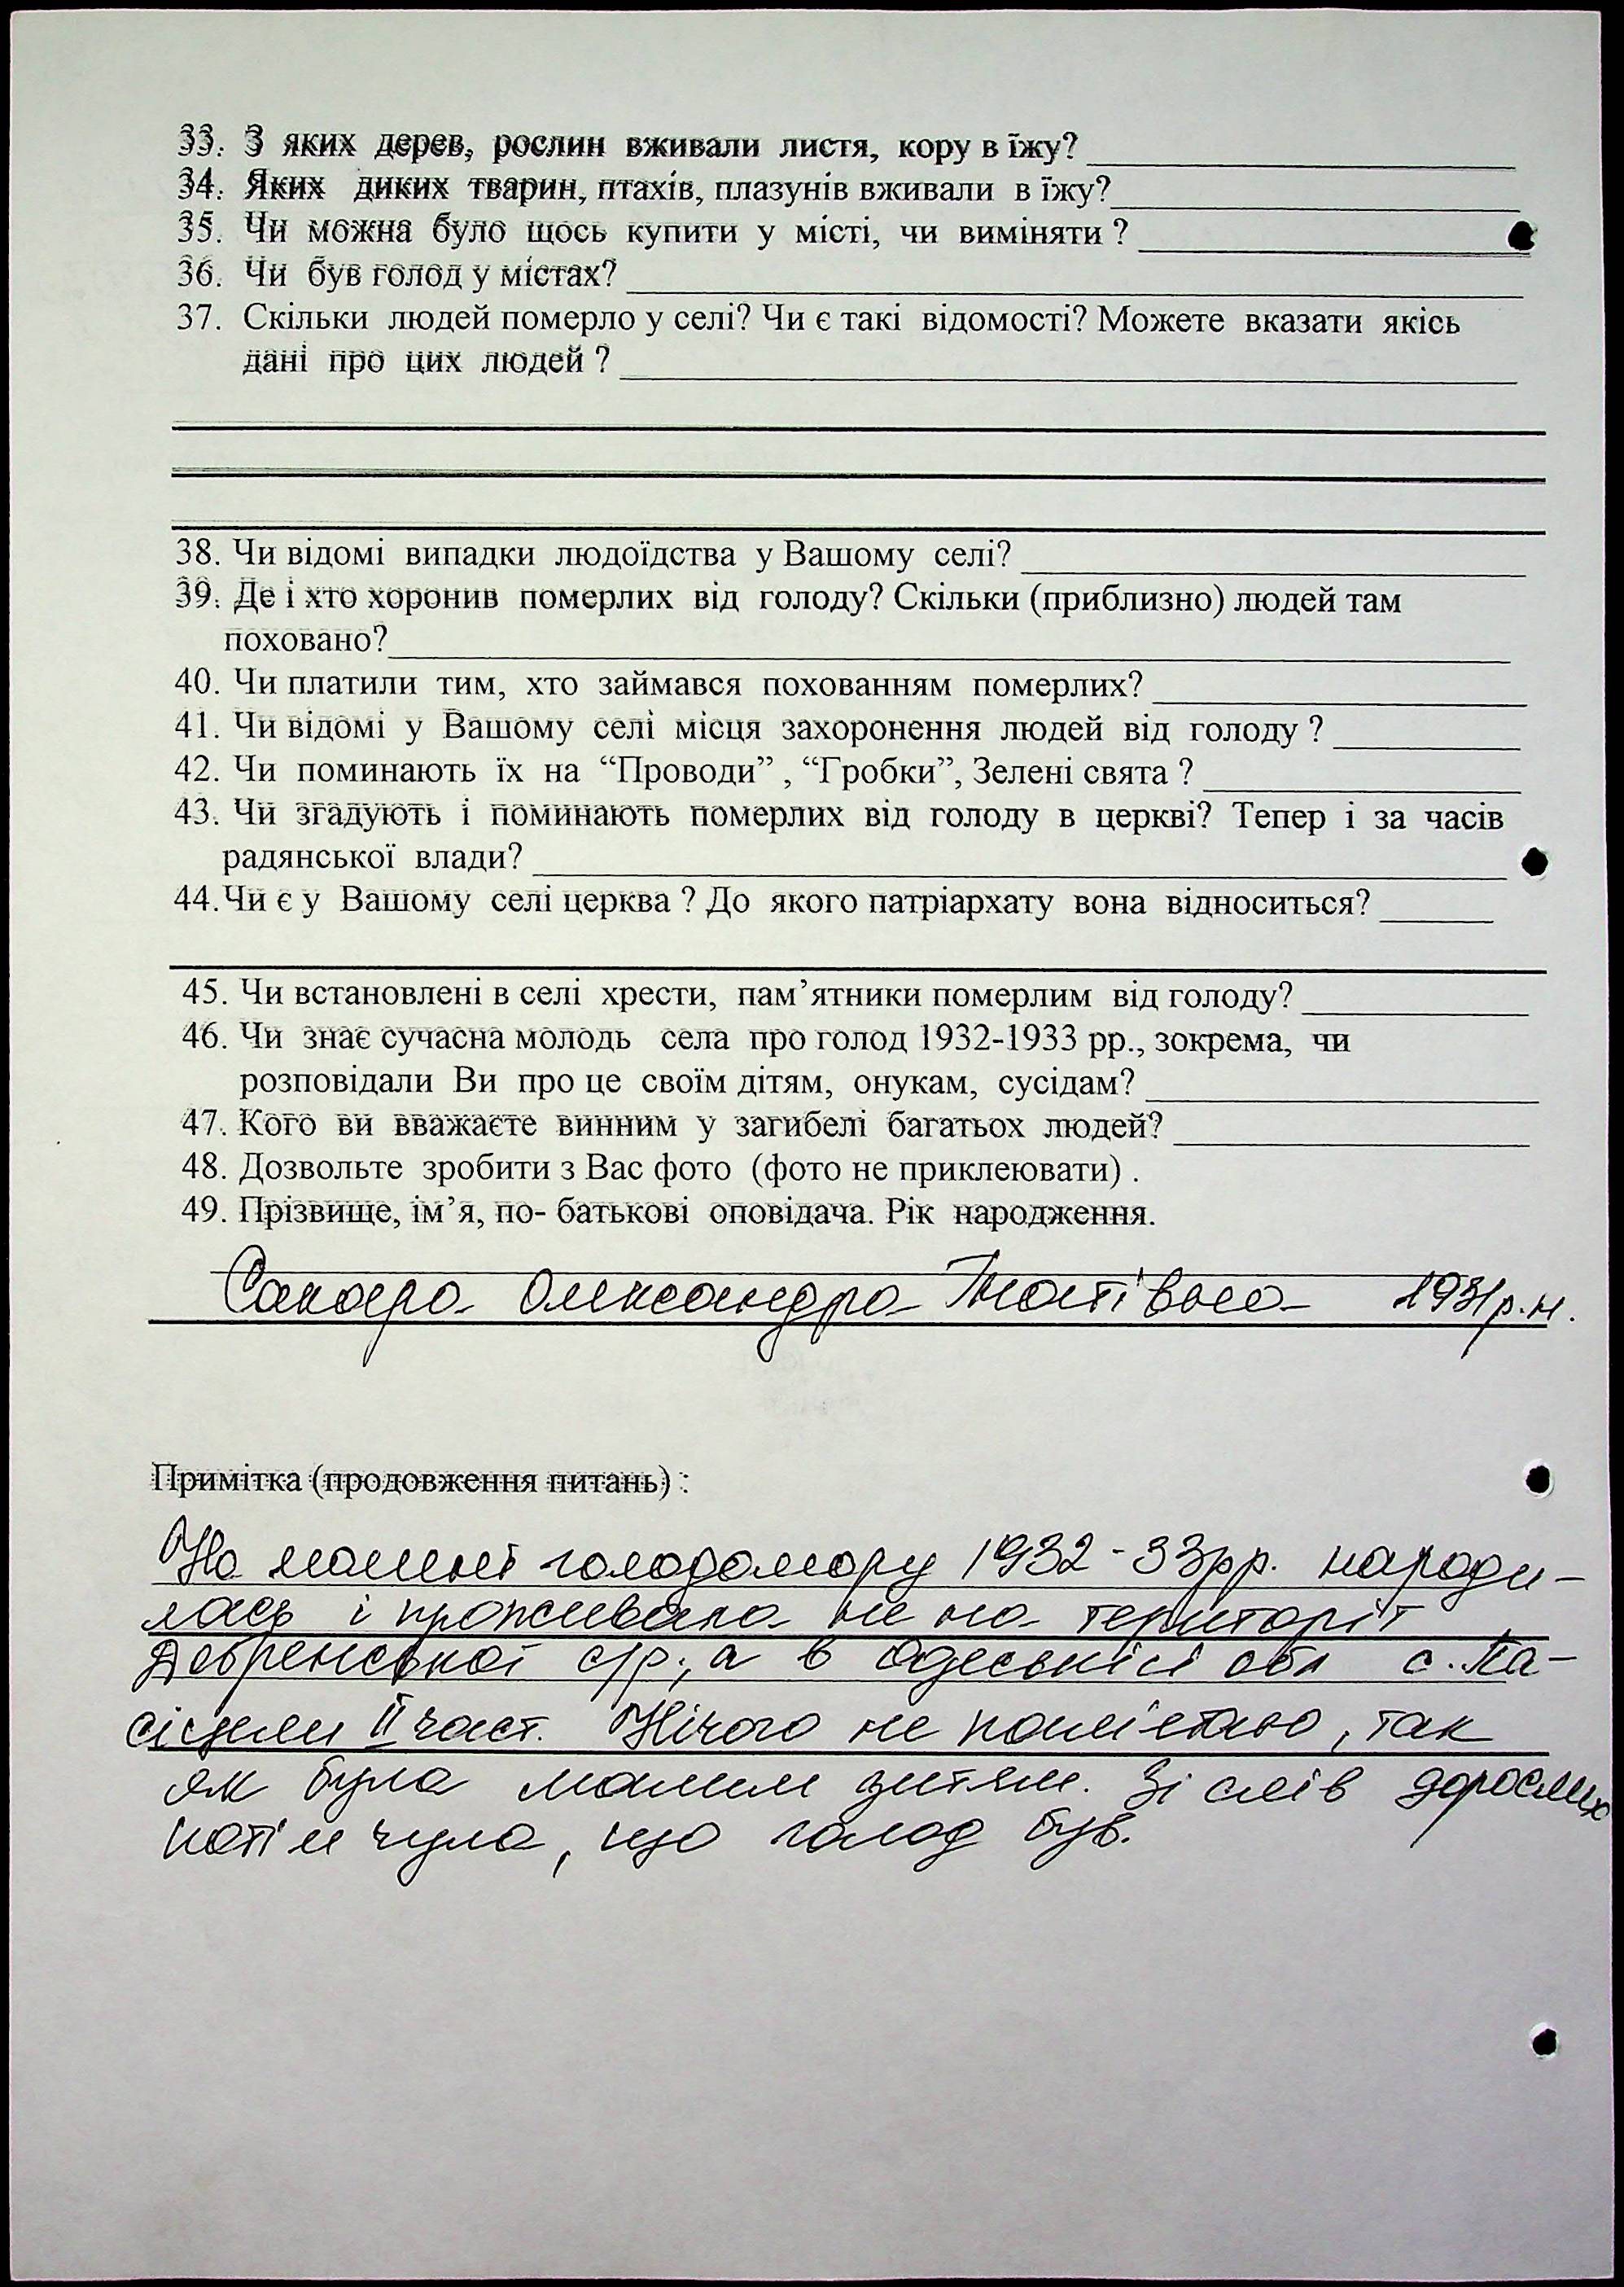 33. З яких дерев, рослин вживали листя, кору в їжу?
34. Яких диких тварин, птахів, плазунів вживали в їжу?
35. Чи можна було щось купити у місті, чи виміняти ?
36. Чи був голод у містах?
37. Скільки людей померло у селі? Чи є такі відомості? Можете вказати якісь
дані про цих людей ?
38. Чи відомі випадки людоїдства у Вашому селі?
39. Де і хто хоронив померлих від голоду? Скільки (приблизно) людей там
поховано?
40. Чи платили тим, хто займався похованням померлих?
41. Чи відомі у Вашому селі місця захоронення людей від голоду ?
42. Чи поминають їх на “Проводи” , “Гробки”, Зелені свята ?
43. Чи згадують і поминають померлих від голоду в церкві? Тепер і за часів
радянської влади?
44.Чи є у Вашому селі церква ? До якого патріархату вона відноситься?
45. Чи встановлені в селі хрести, пам’ятники померлим від голоду?
46. Чи знає сучасна молодь села про голод 1932-1933 рр., зокрема, чи
розповідали Ви про це своїм дітям, онукам, сусідам?
47. Кого ви вважаєте винним у загибелі багатьох людей?
48. Дозвольте зробити з Вас фото (фото не приклеювати) .
49. Прізвище, ім’я, по- батькові оповідача. Рік народження.
Олександра 1931р.н.
Примітка (продовження питань) :
На момент голодомору 1932-33рр. народи-
лась і проживала не на територіт
Дебренської с/р, а в Одеській обл с. Па-
сіцели II част. Нічого не помпетаю, так
як була малим дитям. Зі слів дорослих
потім чула, що голод був.